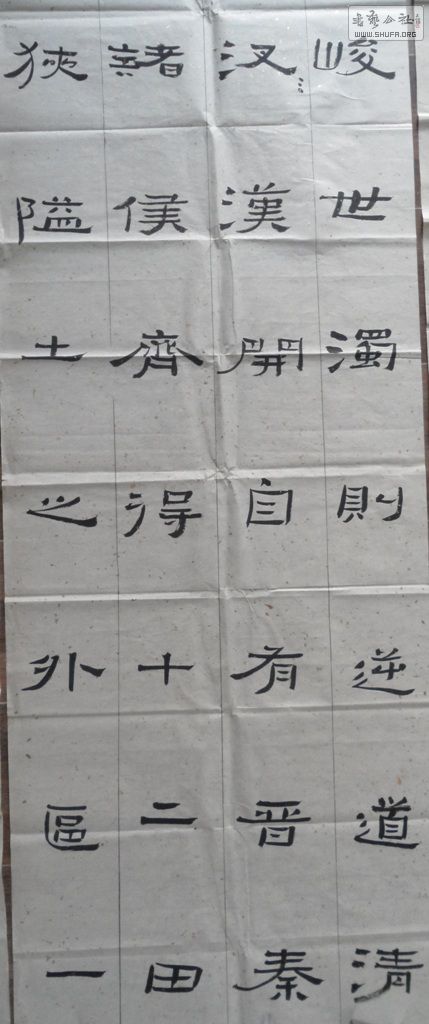 書藝公社
WWW.SHUFA.ORG
峻世濁則逆道清
漢開自有晉秦
諸侯齊得十二田
狹隘土之外區一